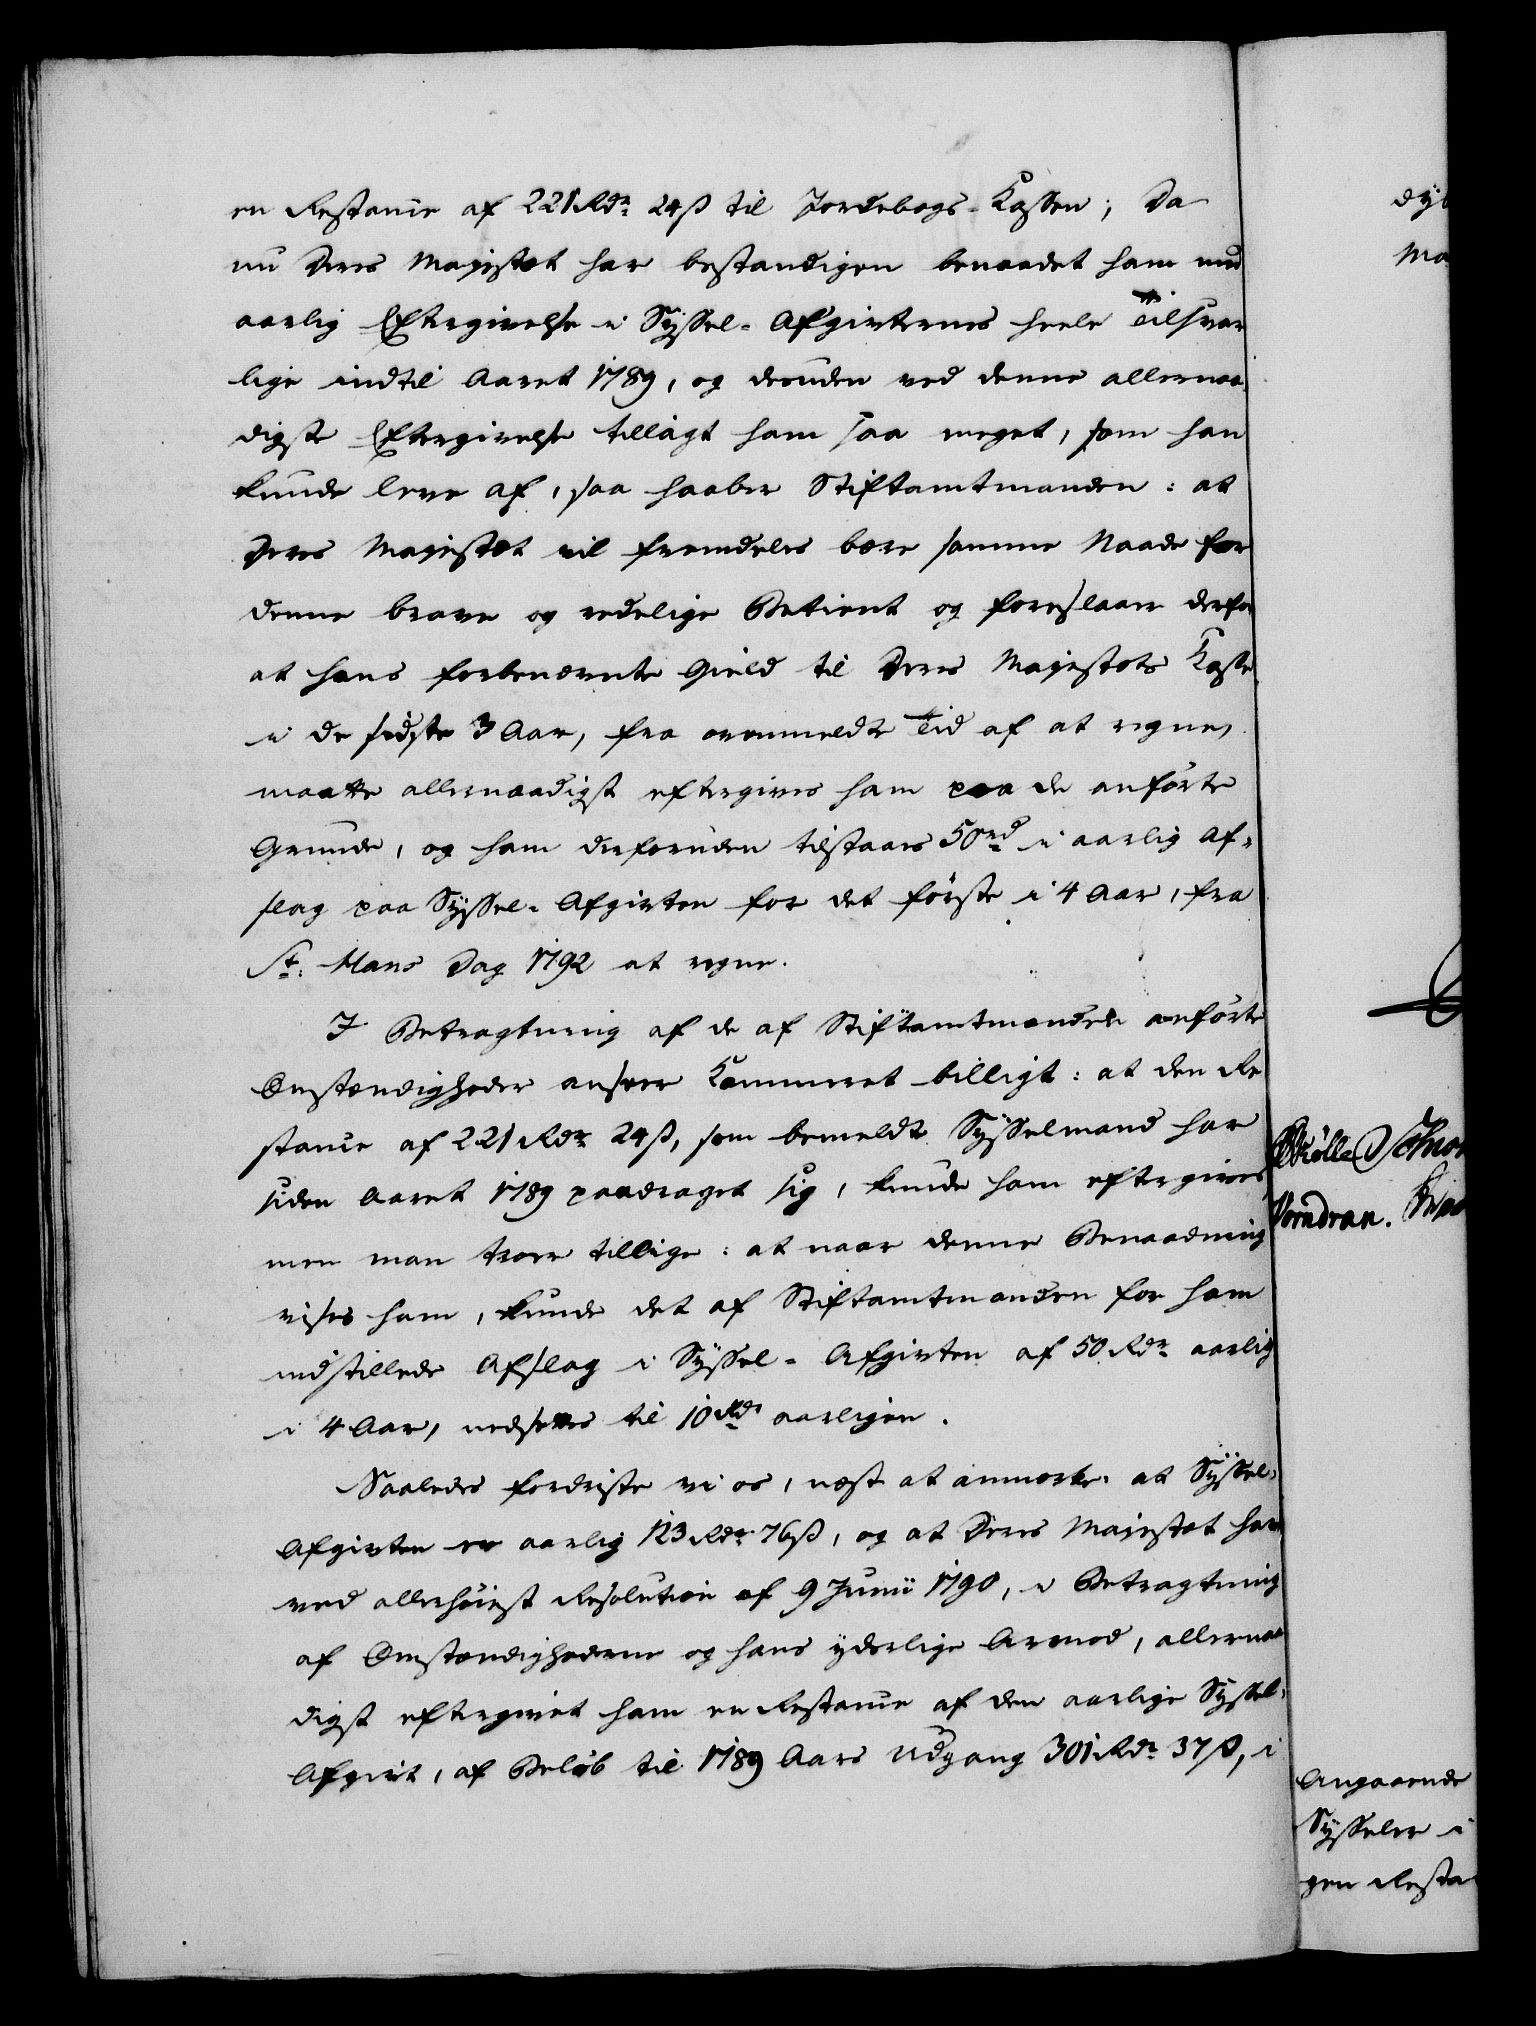 en Restance af 221 Rdr 24 ß til Jordebogs-Kassen; Da
nu Deres Majestæt har bestandigen benaadet ham med
aarlig Eftergivelse i Syssel-Afgivternes heele Tilsvar
lige indtil Aaret 1789, og desuden ved denne allernaa-
digste Eftergivelse tillagt ham saa meget, som han
kunde leve af, saa haaber Stiftamtmanden: at
Deres Majestæt vil fremdeles bære samme Naade for
denne brave og redelige Betient og foreslaaer derfor
at hans forbenævnte Gield til Deres Majestæts Kasse
i de sidste 3 Aar, fra ovenmeldte Tid af at regne,
maatte allernaadigst eftergives ham paa de anførte
Grunde, og ham desforuden tilstaaes 50 rd i aarlig Af-
slag paa Syssel-Afgivten for det første i 4 Aar, fra
St. Hans Dag 1792 at regne.
I Betragtning af de af Stiftamtmanden anførte
Omstændigheder anseer Kammeret billigt: at den Re
stance af 221 Rdr 24 ß, som bemeldte Sysselmand har
siden Aaret 1789 paadraget sig, kunde ham eftergives,
men man troer tillige: at naar denne Benaadning
vises ham, kunde det af Stiftamtmanden for ham
indstillede Afslag i Syssel-Afgivten af 50 Rdr aarlig
i 4 Aar, nedsettes til 10 Rdr aarligen.
Saaledes fordriste vi os, næst at anmærke: at Syssel-
Afgivten er aarlig 123 Rdr 76 ß, og at Deres Majestæt har
ved allerhöiest Resolution af 9 Junii 1790, i Betragtning
af Omstændighederne og hans yderlige Armod, allernaa
digst eftergivet ham en Restance af den aarlige Syssel-
Afgivt, af Beløb til 1789 Aars Udgang 301 Rdr 37 ß, i
Angaaende
Sysseler i
gen Resta